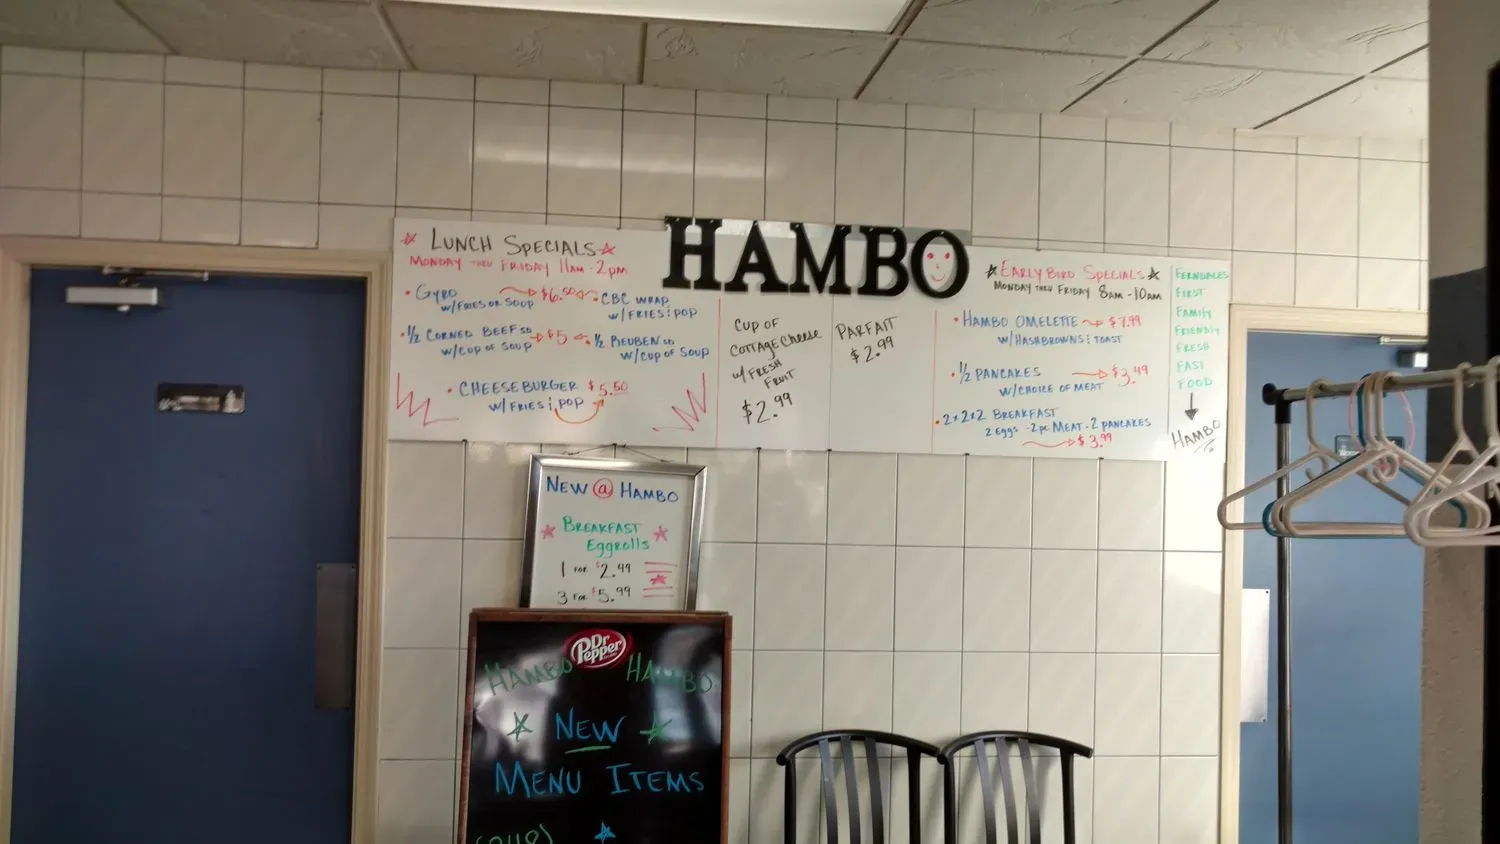 HAMBO
LUNCH SPECIALS
MONDAY THRU FRIDAY 11AM - 2PM
• GYRO
W/FRIES OR SOUP
$6.50
• CBC WRAP
W/ FRIES & POP
• 1/2 CORNED BEEF SD
W/CUP OF SOUP
$5
• 1/2 REUBEN SD
W/CUP OF SOUP
• CHEESEBURGER $5.50
W/ FRIES & POP
CUP OF
COTTAGE CHEESE
W/ FRESH
FRUIT
$2.99
PARFAIT
$2.99
EARLY BIRD SPECIALS
MONDAY THRU FRIDAY 8AM - 10AM
• HAMBO OMELETTE $7.99
W/HASHBROWNS & TOAST
• 1/2 PANCAKES $3.49
W/CHOICE OF MEAT
• 2x2x2 BREAKFAST
2 EGGS - 2PC MEAT - 2 PANCAKES
$3.99
FERNDALES
FIRST
FAMILY
FRIENDLY
FRESH
FAST
FOOD
HAMBO
NEW @ HAMBO
BREAKFAST
EGGROLLS
1 FOR $2.49
3 FOR $5.99
Dr Pepper
HAMBO HAMBO
NEW
MENU ITEMS